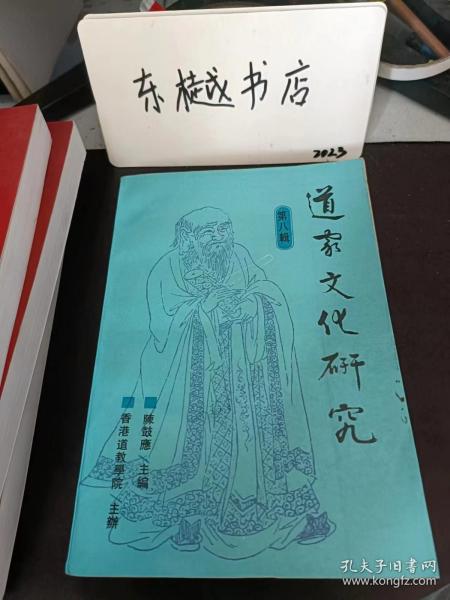 东樾书店
2023
道家文化研究
第八輯
陳鼓應／主編
香港道教學院／主辦
孔夫子旧书网
www.kongfz.com